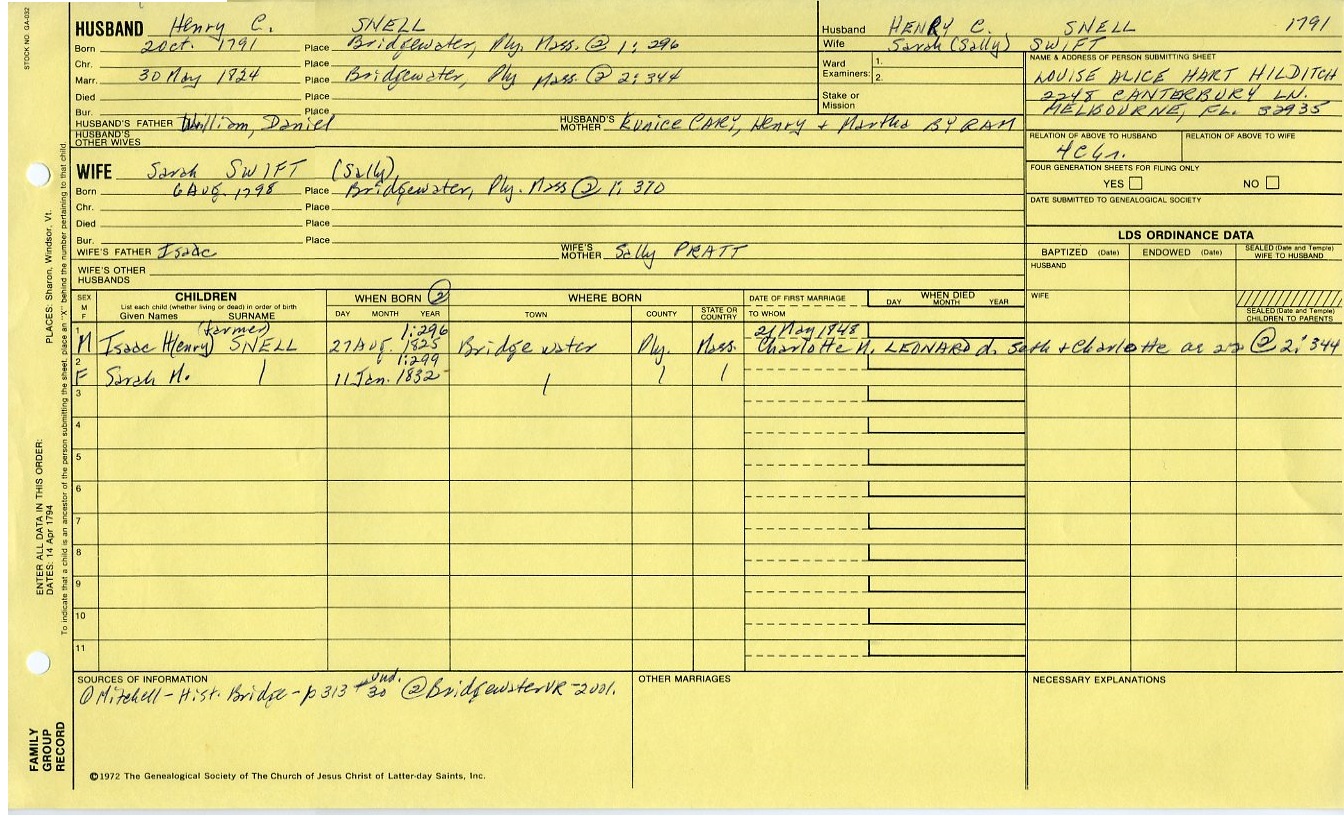 STOCK NO. GA-032
HUSBAND Henry C. SNELL
Born 2 Oct. 1791 Place Bridgewater, Ply. Mass. @ 1: 296
Chr. Place
Marr. 30 May 1824 Place Bridgewater, Ply Mass. ② 2: 344
Died Place
Bur. Place
HUSBAND'S FATHER William, Daniel HUSBAND'S MOTHER Eunice CARY, Henry + Martha BYRAM
HUSBAND'S OTHER WIVES
Husband HENRY C. SNELL 1791
Wife Sarah (Sally) SWIFT
Ward Examiners: 1.
2.
Stake or Mission
NAME & ADDRESS OF PERSON SUBMITTING SHEET
LOUISE ALICE HART HILDITCH
2248 CANTERBURY LN.
MELBOURNE, FL. 32935
RELATION OF ABOVE TO HUSBAND RELATION OF ABOVE TO WIFE
FOUR GENERATION SHEETS FOR FILING ONLY
YES NO
DATE SUBMITTED TO GENEALOGICAL SOCIETY
WIFE Sarah SWIFT (Sally)
Born 6 Aug. 1798 Place Bridgewater, Ply. Mass ② 1: 310
Chr. Place
Died Place
Bur. Place
WIFE'S FATHER Isaac WIFE'S MOTHER Sally PRATT
WIFE'S OTHER HUSBANDS
LDS ORDINANCE DATA
BAPTIZED (Date) ENDOWED (Date) SEALED (Date and Temple) WIFE TO HUSBAND
HUSBAND
WIFE
SEALED (Date and Temple) CHILDREN TO PARENTS
SEX M F
CHILDREN
List each child (whether living or dead) in order of birth
Given Names SURNAME
WHEN BORN ②
DAY MONTH YEAR
WHERE BORN
TOWN COUNTY STATE OR COUNTRY
DATE OF FIRST MARRIAGE
TO WHOM
WHEN DIED
DAY MONTH YEAR
1 (farmer) 1:296 21 May 1848
M Isaac H(enry) SNELL 27 Aug 1825 Bridgewater Ply. Mass. Charlotte M. LEONARD d. Seth + Charlotte ae 22 @ 2: 344
2 1:299
F Sarah M. 11 Jan. 1832
3
4
5
6
7
8
9
10
11
SOURCES OF INFORMATION
① Mitchell - Hist. Bridge - p 313 #30 und. ② Bridgewater VR - 2001.
OTHER MARRIAGES
NECESSARY EXPLANATIONS
©1972 The Genealogical Society of The Church of Jesus Christ of Latter-day Saints, Inc.
PLACES: Sharon, Windsor, Vt.
ENTER ALL DATA IN THIS ORDER:
DATES: 14 Apr 1794
To indicate that a child is an ancestor of the person submitting the sheet, place an "X" behind the number pertaining to that child.
FAMILY GROUP RECORD